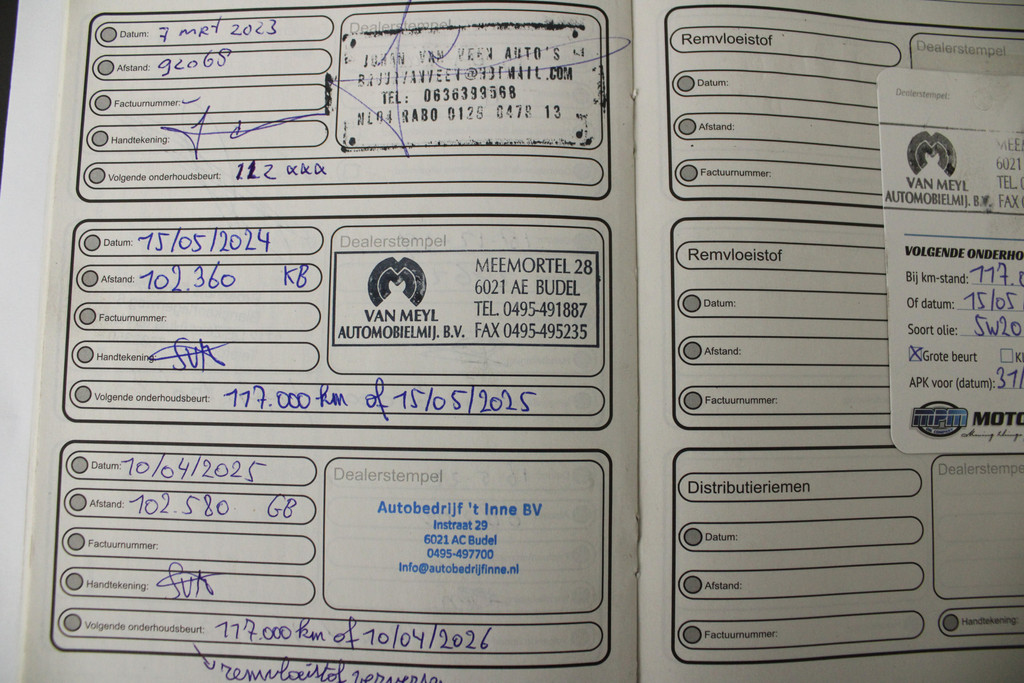 Datum: 7 MRT 2023
Afstand: 92068
Factuurnummer:
Handtekening:
Volgende onderhoudsbeurt: 112 xxx
Dealerstempel
JOHAN VAN VEEN AUTO'S
TEL: 0636399568
Datum: 15/05/2024
Afstand: 102.360 KB
Factuurnummer:
Handtekening:
Volgende onderhoudsbeurt: 117.000 km of 15/05/2025
Dealerstempel
VAN MEYL
AUTOMOBIELMIJ. B.V.
MEEMORTEL 28
6021 AE BUDEL
TEL. 0495-491887
FAX 0495-495235
Datum: 10/04/2025
Afstand: 102.580 GB
Factuurnummer:
Handtekening:
Volgende onderhoudsbeurt: 117.000 km of 10/04/2026
remvloeistof
Dealerstempel
Autobedrijf 't Inne BV
Instraat 29
6021 AC Budel
0495-497700
Info@autobedrijfinne.nl
Remvloeistof
Datum:
Afstand:
Factuurnummer:
Dealerstempel
Remvloeistof
Datum:
Afstand:
Factuurnummer:
Distributieriemen
Datum:
Afstand:
Factuurnummer:
Dealerstempe
Handtekening:
Dealerstempel:
VAN MEYL
AUTOMOBIELMIJ. B.V.
6021
TEL.
FAX
VOLGENDE ONDERHO
Bij km-stand: 117.
Of datum: 15/05
Soort olie: 5W20
Grote beurt
APK voor (datum): 31/
mpm MOTO